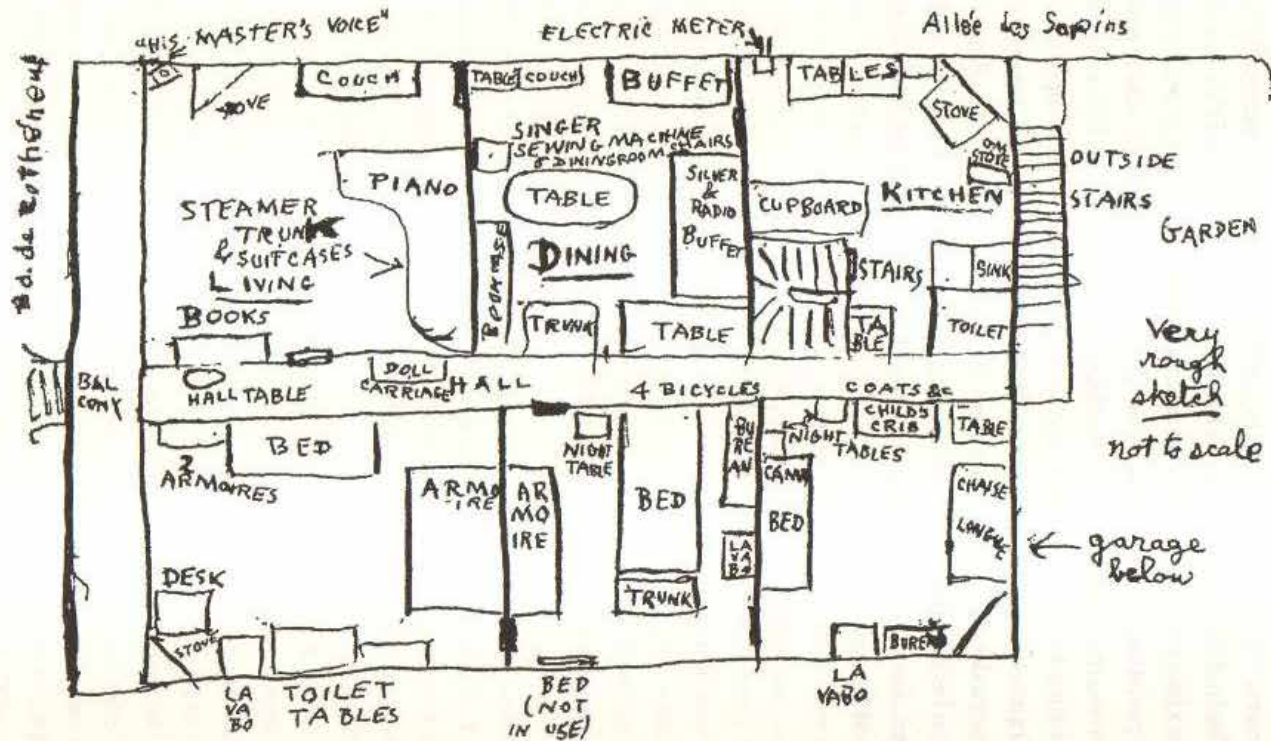 "HIS MASTER'S VOICE"
ELECTRIC METER
Allée des Sapins
Bd. de Rothéneuf
STOVE
COUCH
TABLE
COUCH
BUFFET
TABLES
STOVE
STOVE
OUTSIDE
STAIRS
GARDEN
SINGER
SEWING MACHINE
& DININGROOM CHAIRS
PIANO
TABLE
SILVER
& RADIO
BUFFET
CUPBOARD
KITCHEN
STEAMER
TRUNK
& SUITCASES
LIVING
BOOKCASE
DINING
STAIRS
SINK
BOOKS
TRUNK
TABLE
TA
BLE
TOILET
Very
rough
sketch
not to scale
BAL
CONY
HALL TABLE
DOLL
CARRIAGE
HALL
4 BICYCLES
COATS &c
2
ARMOIRES
BED
NIGHT
TABLE
BU
RE
AU
NIGHT
TABLES
CHILD'S
CRIB
TABLE
ARMO
IRE
AR
MO
IRE
BED
BED
CHAISE
LONGUE
garage
below
LA
VA
BO
DESK
TRUNK
STOVE
LA
VA
BO
TOILET
TABLES
BED
(NOT
IN USE)
LA
VABO
BUREAU